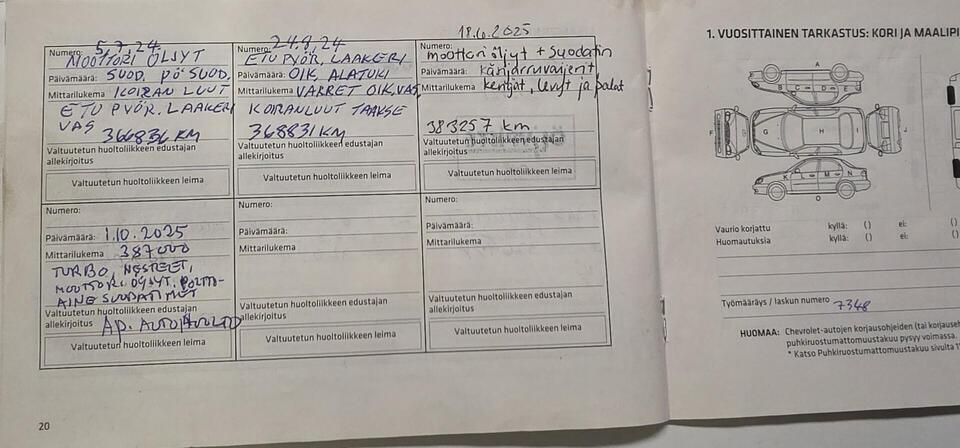 5.7.24.
Numero:
MOOTTORI ÖLJYT
Päivämäärä: SUOD. PÖ SUOD.
Mittarilukema KOIRAN LUUT
ETU PYÖR. LAAKERI
VAS
366836 KM
Valtuutetun huoltoliikkeen edustajan
allekirjoitus
Valtuutetun huoltoliikkeen leima
24.8,24
Numero:
ETU PYÖR, LAAKERI
Päivämäärä: OIK, ALATUKI
Mittarilukema VARRET OIK, VAS,
KOIRANLUUT TAAKSE
368831 KM
Valtuutetun huoltoliikkeen edustajan
allekirjoitus
Valtuutetun huoltoliikkeen leima
2025
Numero:
moottoriöljyt + suodatin
Päivämäärä: käsijarruvaijerit
Mittarilukema kengät, levyt ja palat
383257 km
Valtuutetun huoltoliikkeen edustajan
allekirjoitus
Valtuutetun huoltoliikkeen leima
Numero:
Päivämäärä: 1.10.2025
Mittarilukema 387000
TURBO, NESTEET,
MOOTTORI ÖLJYT. POLTTO-
AINE SUODATTIMET
Valtuutetun huoltoliikkeen edustajan
allekirjoitus AP. AUTOHUOLTO
Valtuutetun huoltoliikkeen leima
Numero:
Päivämäärä:
Mittarilukema
Valtuutetun huoltoliikkeen edustajan
allekirjoitus
Valtuutetun huoltoliikkeen leima
Numero:
Päivämäärä:
Mittarilukema
Valtuutetun huoltoliikkeen edustajan
allekirjoitus
Valtuutetun huoltoliikkeen leima
20
1. VUOSITTAINEN TARKASTUS: KORI JA MAALIPI
A
B C D E
F G H I J
K L M N
O
Vaurio korjattu kyllä: ( ) ei: ( )
Huomautuksia kyllä: ( ) ei: ( )
Työmääräys / laskun numero 7348
HUOMAA: Chevrolet-autojen korjausohjeiden (tai korjauseh
puhkiruostumattomuustakuu pysyy voimassa.
* Katso Puhkiruostumattomuustakuu sivulta 1